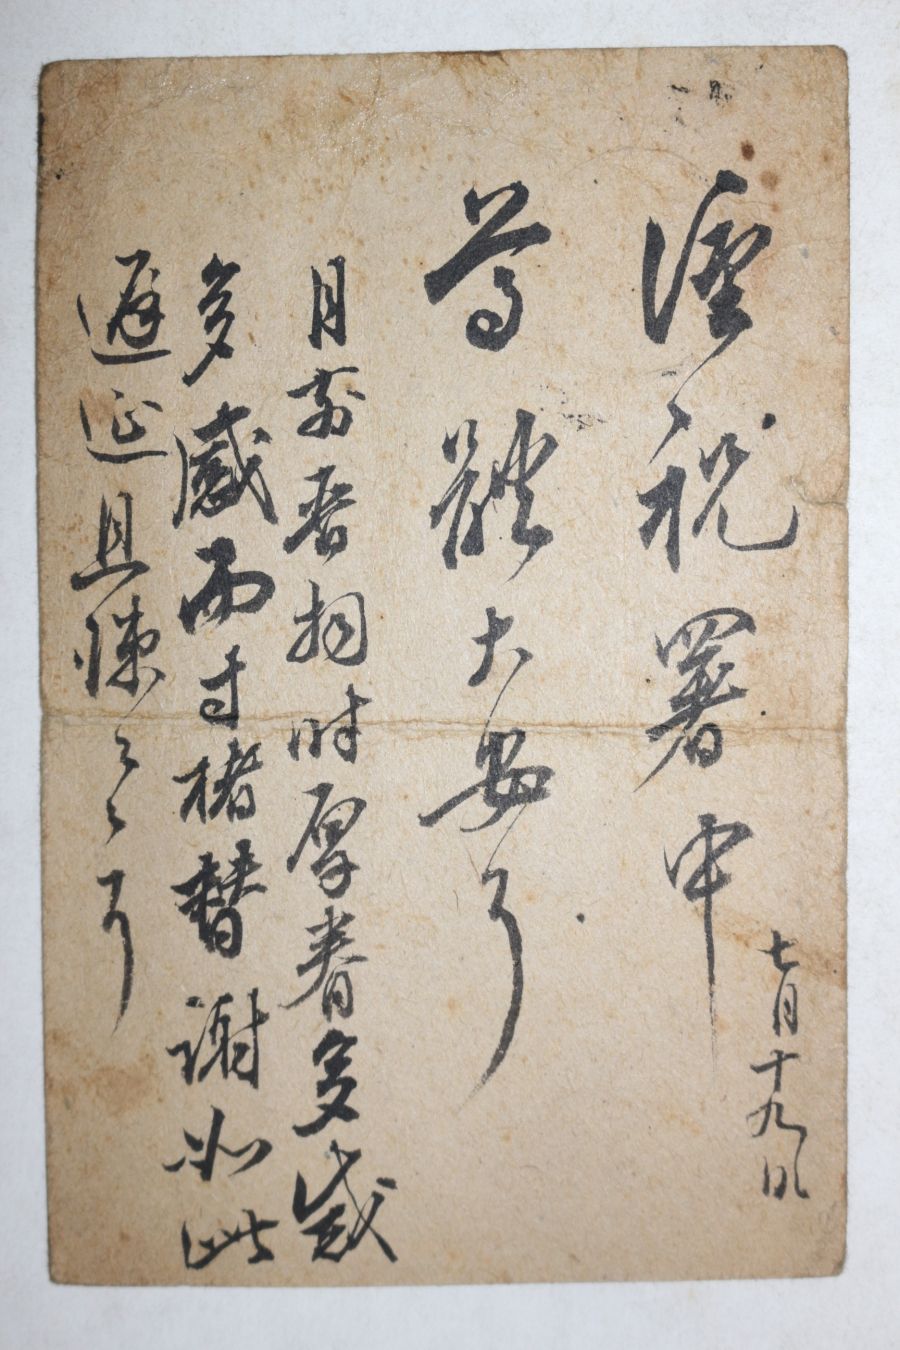 七月十九日
謹祝暑中
尊體大安
月前晉拜時厚眷多感
多感而寸楮替謝如此
遲延且悚〻〻